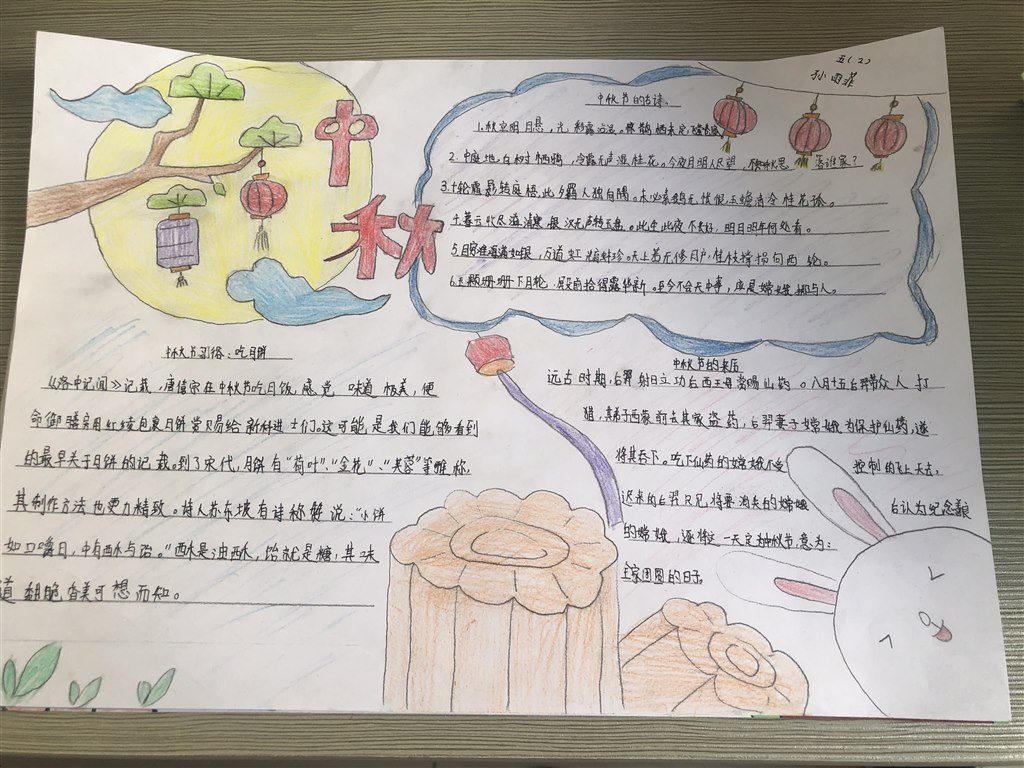 五(2)
孙雨菲
中秋
中秋节的古诗
1.秋空明月悬，光彩露沾湿，惊鹊栖未定，飞萤卷
2.中庭地白树栖鸦，冷露无声湿桂花。今夜月明人尽望，不知秋思落谁家？
3.十轮霜影转庭梧，此夕羁人独向隅。未必素娥无怅恨，玉蟾清冷桂花孤。
4.暮云收尽溢清寒，银汉无声转玉盘。此生此夜不长好，明月明年何处看。
5.目穷淮海满如银，万道虹光蚌珍。天上若无修月户，桂枝撑损向西轮。
6.玉颗珊珊下月轮，殿前拾得露华新。至今不会天中事，应是嫦娥掷与人。
中秋节习俗：吃月饼
《洛中记闻》记载，唐僖宗在中秋节吃月饭，感觉味道极美，便
命御膳房用红绫包裹月饼赏赐给新科进士们。这可能是我们能够看到
的最早关于月饼的记载。到了宋代，月饼有“荷叶”、“金花”、“芙蓉”等雅称，
其制作方法也更力精致。诗人苏东坡有诗称赞说：“小饼
如口嚼月，中有酥与饴。”酥是油酥，饴就是糖，其味
道甜脆香美可想而知。
中秋节的来历
远古时期，后羿射日立功后西王母赏赐仙药。八月十五后羿带众人打
猎，其弟子西蒙前去其家盗药，后羿妻子嫦娥为保护仙药，遂
将其吞下。吃下仙药的嫦娥不受控制的飞上天去，
迟来的后羿只见将要消失的嫦娥后认为纪念
的嫦娥，遂将这一天定为中秋节，意为：
全家团圆的日子。